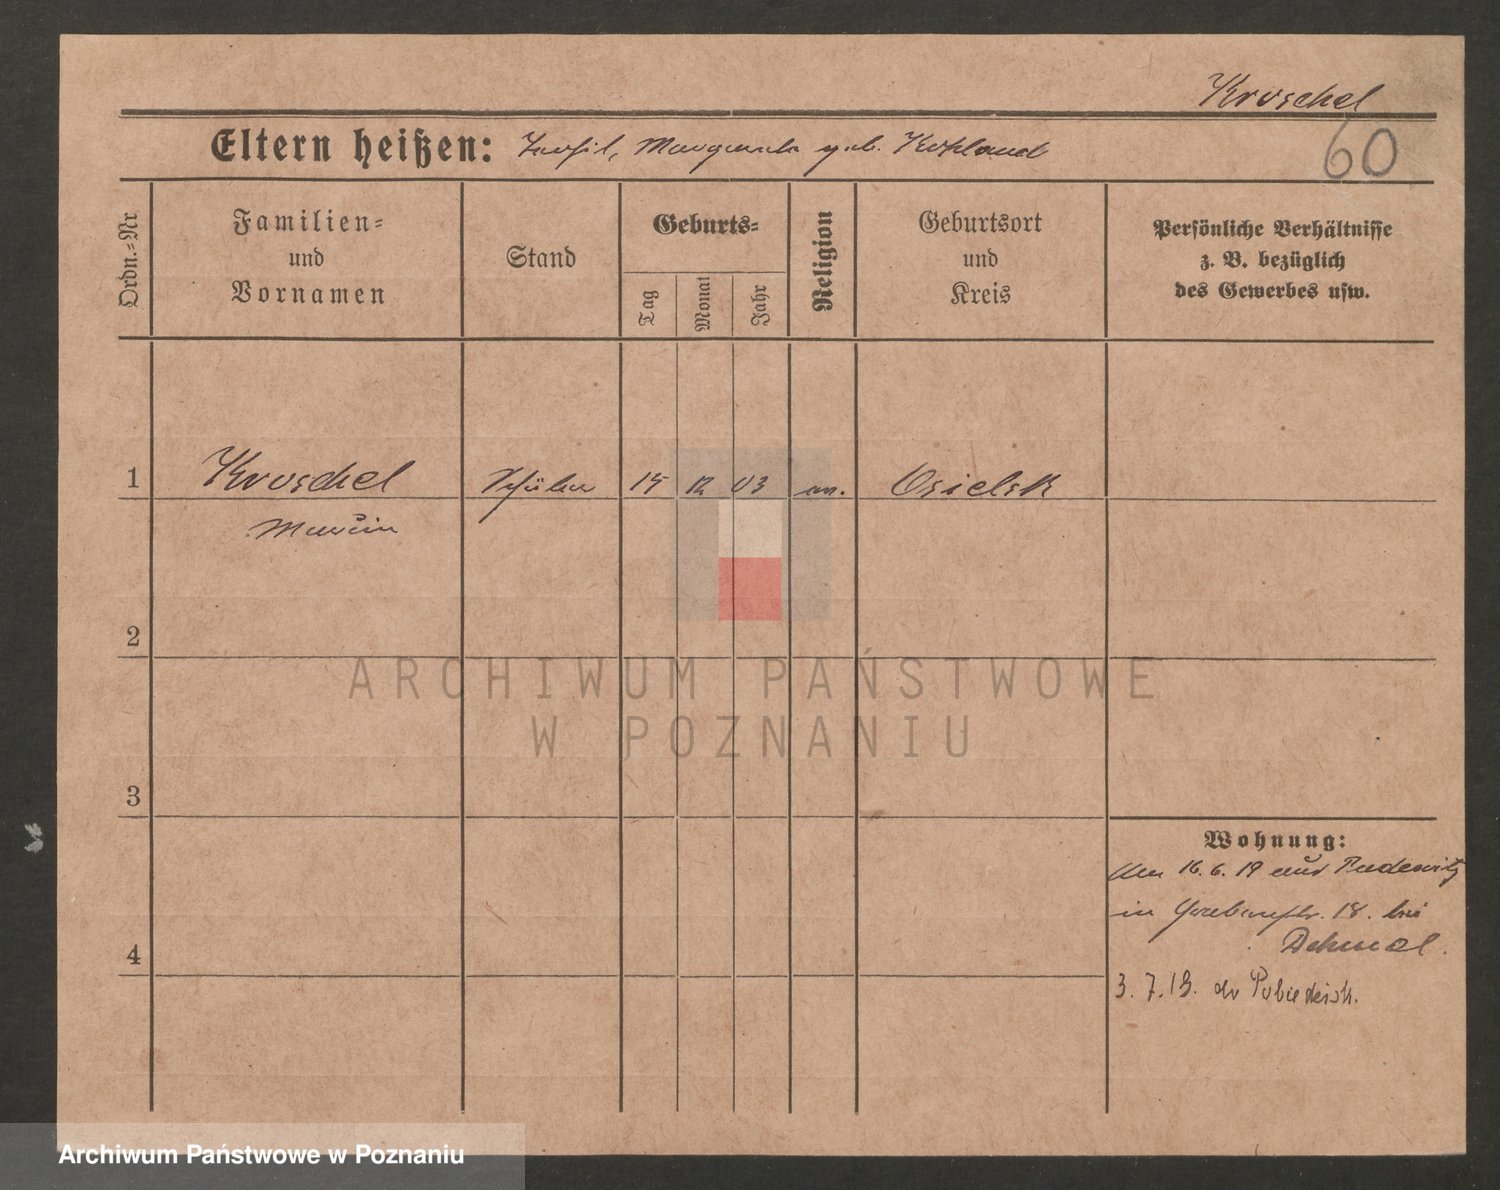 Kroschel
60
Eltern heißen: geb.
Ordn.=Nr
Familien=
und
Vornamen
Stand
Geburts=
Tag
Monat
Jahr
Religion
Geburtsort
und
Kreis
Persönliche Verhältnisse
z. B. bezüglich
des Gewerbes usw.
1
Kroschel
Schüler
12
03
Osielsk
2
3
4
Wohnung:
Am 16.6.19 aus Pudewitz
in 18. bei
3.7.19.
ARCHIWUM PAŃSTWOWE
W POZNANIU
Archiwum Państwowe w Poznaniu